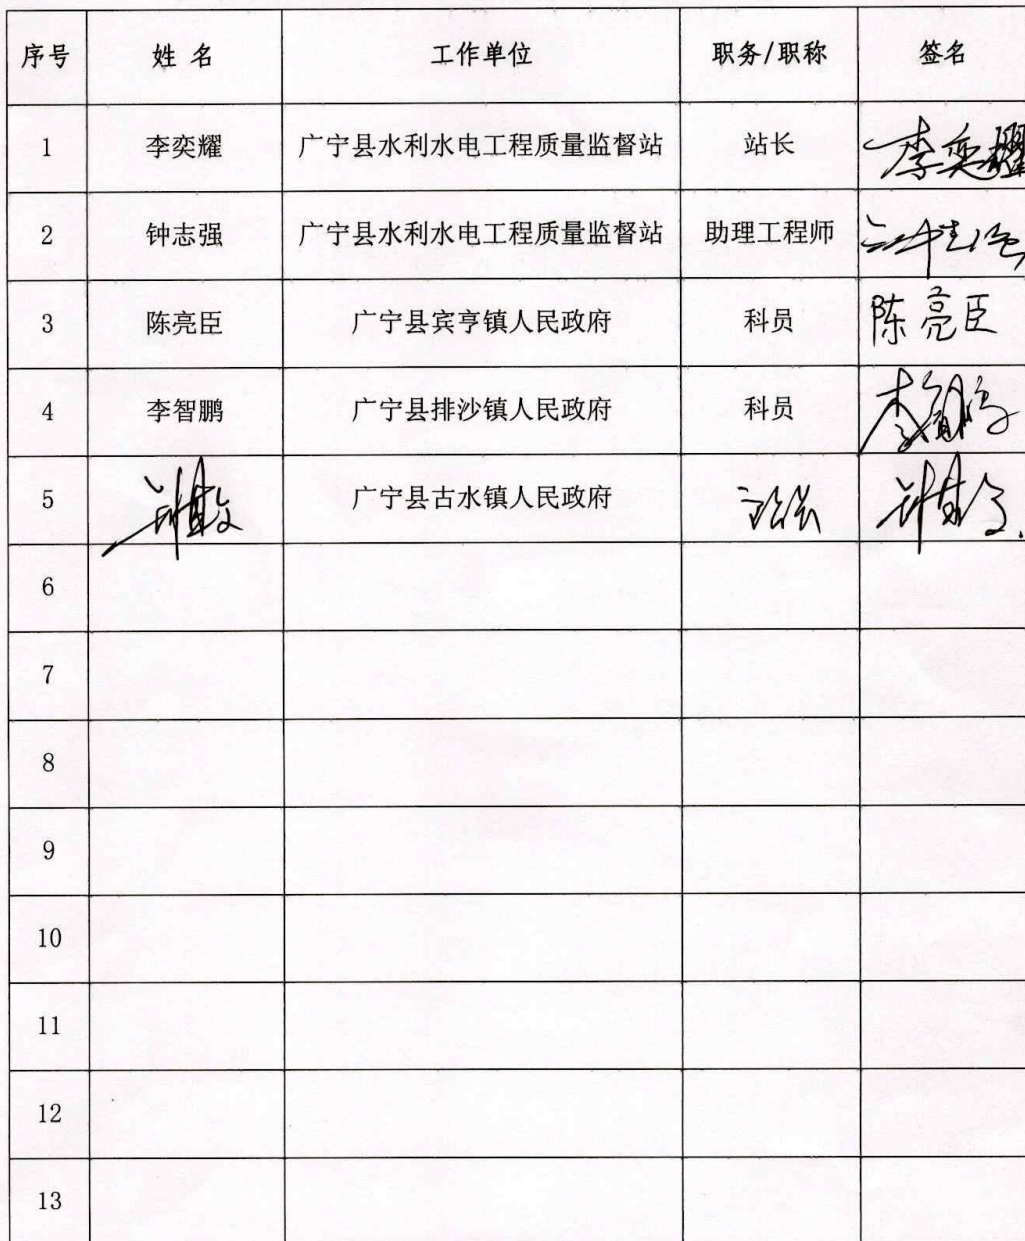 序号 姓 名 工作单位 职务/职称 签名
1 李奕耀 广宁县水利水电工程质量监督站 站长 李奕耀
2 钟志强 广宁县水利水电工程质量监督站 助理工程师 钟志强
3 陈亮臣 广宁县宾亨镇人民政府 科员 陈亮臣
4 李智鹏 广宁县排沙镇人民政府 科员 李智鹏
5 广宁县古水镇人民政府
6
7
8
9
10
11
12
13